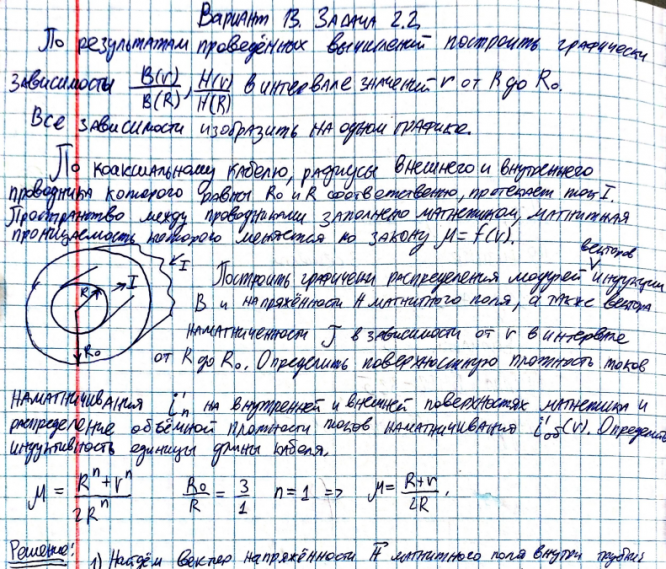 Вариант 13. Задача 2.2
По результатам проведённых вычислений построить графически
зависимости B(r)/B(R), H(r)/H(R) в интервале значений r от R до R₀.
Все зависимости изобразить на одном графике.
По коаксиальному кабелю, радиусы внешнего и внутреннего
проводника которого равны R₀ и R соответственно, протекает ток I.
Пространство между проводниками заполнено магнетиком, магнитная
проницаемость которого меняется по закону μ = f(r).
векторов
Построить графически распределения модулей индукции
B и напряжённости H магнитного поля, а также вектора
намагниченности J в зависимости от r в интервале
от R до R₀. Определить поверхностную плотность токов
R I I
R₀
намагничивания i'п на внутренней и внешней поверхностях магнетика и
распределение объёмной плотности токов намагничивания i'об(r). Определить
индуктивность единицы длины кабеля.
μ = (Rⁿ + rⁿ)/(2Rⁿ) R₀/R = 3/1 n = 1 => μ = (R+r)/(2R).
Решение: 1) Найдём вектор напряжённости H⃗ магнитного поля внутри трубки: